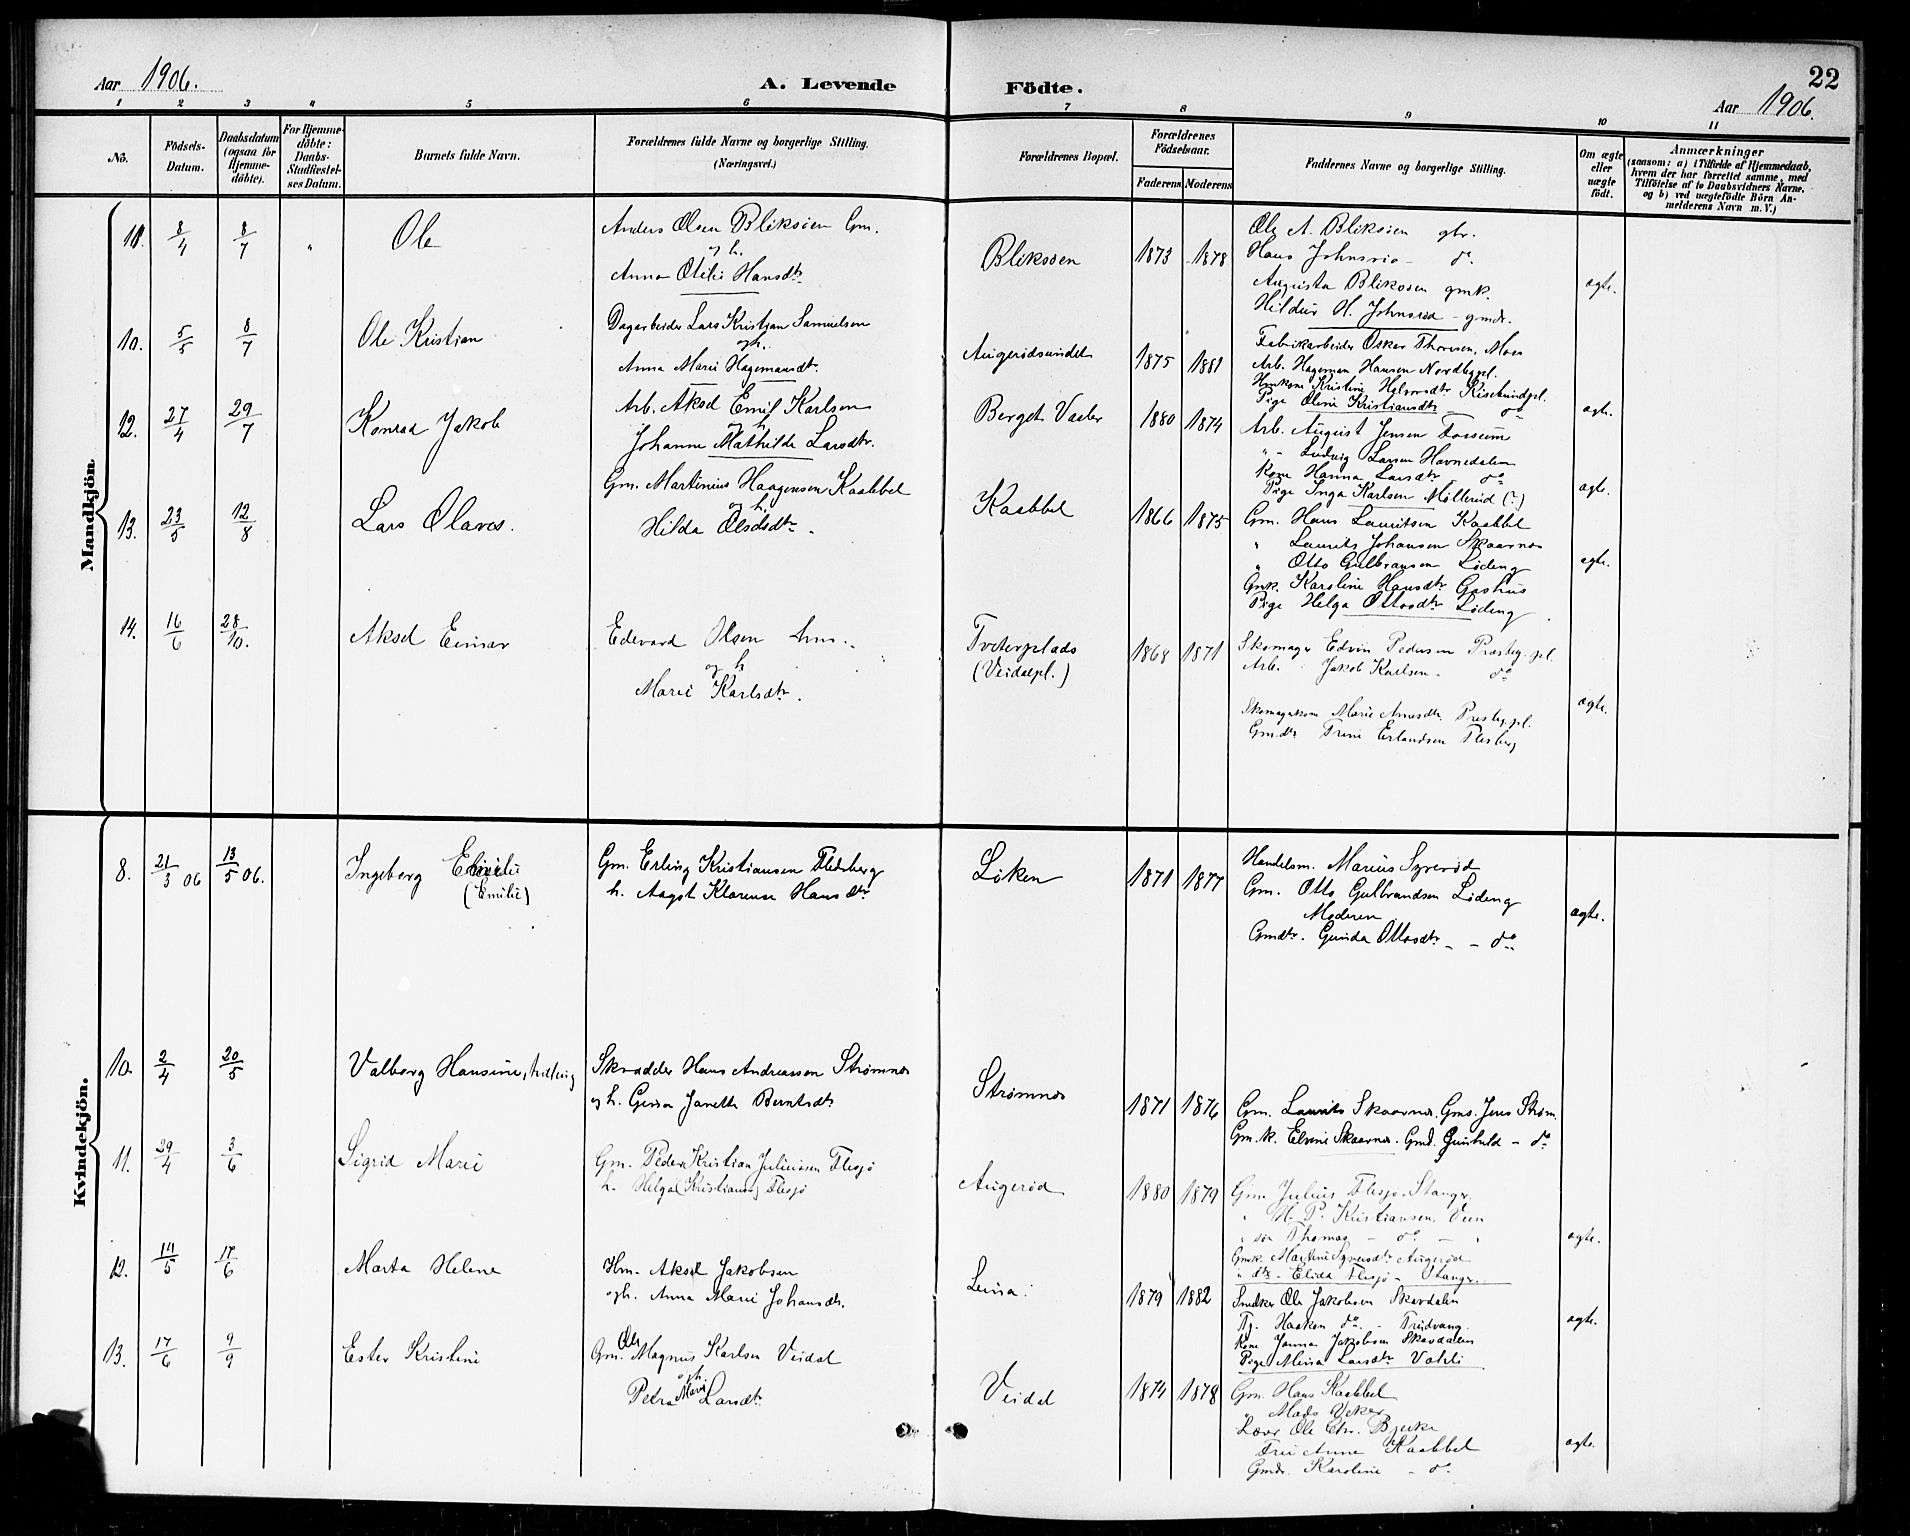 Aar 1906. A. Levende Födte. 22
Aar 1906.
1 2 3 4 5 6 7 8 9 10 11
No.
Födsels-
Datum.
Daabsdatum
(ogsaa for
Hjemme-
döbte).
For Hjemme-
döbte:
Daabs-
Stadfæstel-
ses Datum.
Barnets fulde Navn.
Forældrenes fulde Navne og borgerlige Stilling.
(Næringsvei.)
Forældrenes Bopæl.
Forældrenes
Födselsaar.
Faderens Moderens
Faddernes Navne og borgerlige Stilling.
Om ægte
eller
uægte
födt.
Anmærkninger
(saasom: a) i Tilfælde af Hjemmedaab,
hvem der har forrettet samme, med
Tilföielse af to Daabsvidners Navne,
og b) ved uægtefödte Börn An-
melderens Navn m. V.)
Mandkjön.
11. 8/4 8/7 " Ole
Anders Olsen Bliksøen Gm.
og h.
Anna Otilie Hansdtr
Bliksøen 1873 1878
Ole A. Bliksøen gbr.
Hans Johnsrio - do
Augusta Bliksøen gmk.
Hildur H. Johnsrød - gmdr.
ægte.
10. 5/5 8/7 Ole Kristian
Dagarbeider Lars Kristian Samuelsen
og h.
Anna Marie Hagemansdtr.
Augerødsundet 1875 1881
Fabrikarbeider Oskar Thoresen, Moss
Arb. Hageman Hansen Nordbypl.
Hmkone Kristine
Pige Oline Kristiansdtr do
ægte.
12. 27/4 29/7 Konrad Jakob
Arb. Aksel Emil Karlsen
og h
Johanne Mathilde Larsdtr.
Berget Vaaler 1880 1874
Arb. August Jensen Fossum
" - Ludvig Larsen Havnedalen
Kone Hanna Larsdtr do
Pige Inga Karlsen Møllerud (?)
ægte.
13. 23/5 12/8 Lars Olaves.
Gm. Martinius Haagensen Kaabbel
og h.
Hilda Olsdtr.
Kaabbel 1866 1875
Gm. Hans Lauritsen Kaabbel
" Laurits Johansen Skaarnes
" Otto Gulbransen Løding
Gmk. Karoline Hansdtr Gashus
Pige Helga Ottosdtr Løding.
ægte.
14. 16/6 28/10. Aksel Einar
Edevard Olsen
og h
Marie Karlsdtr.
Tveterplads
(Veidalpl.)
1868 1871
Skomager Edvin Pedersen Præsteg.pl.
Arb. Jakob Karlsen - do
Skomagerkone Marie Prestegpl.
Gm.dtr Trine Erlandsen Flesberg
ægte.
Kvindekjön.
8. 21/3 06 13/5 06. Ingeborg
(Emilie)
Gm. Erling Kristiansen Flesberg
h. Aagot Klarense Hansdtr
Løken 1871 1877
Handelsm. Marius Syverød
Gm. Otto Gulbrandsen Løding
Moderen
Gmdtr. Gunda Ottosdtr - - do
ægte.
10. 2/4 20/5 Valborg Hansine,
Skradder Hans Andreassen Strømnes
og h. Janette Berntsdtr
Strømnes 1871 1876
Gm. Laurits Skaarnes. Gms. Jens Strøm.
Gm.k. Elvine Skaarnes. Gmd. Gunhild - do
11. 29/4 3/6 Sigrid Marie
Gm. Peder Kristian Juliussen Flesjø
h. Helga (Kristiansen) Flesjø
Augerød 1880 1879
Gm. Julius Flesjø - Stangr.
" H. P. Kristiansen, Veen
" søn Thomas - do - "
Gmk. Martine Syversdtr Augerød
" dtr - Elida Flesjø - Stangr.
ægte.
12. 14/5 17/6 Marta Helene
Hm. Aksel Jakobsen
og h. Anna Marie Johansdtr.
1879 1882
Snedker Ole Jakobsen Skovdalen
Tj. Haakon do. -
Kone Janna Jakobsen Skovdalen
Pige Mina Larsdtr
ægte.
13. 17/6 9/9 Ester Kristine
Gm. Ole Magnus Karlsen Veidal
og h
Petra Marie Larsdtr
Veidal 1874 1878
Gm. Hans Kaabbel
" Mads
Lærer Ole Chr. Bjerke
Fru Anne Kaabbel
Gmdr. Karoline - do.
ægte.